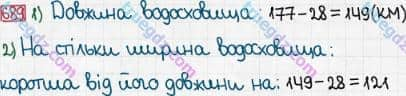 689 1) Довжина водосховища: 177-28=149(км)
2) На стільки ширина водосховища:
коротша від його довжини на: 149-28=121